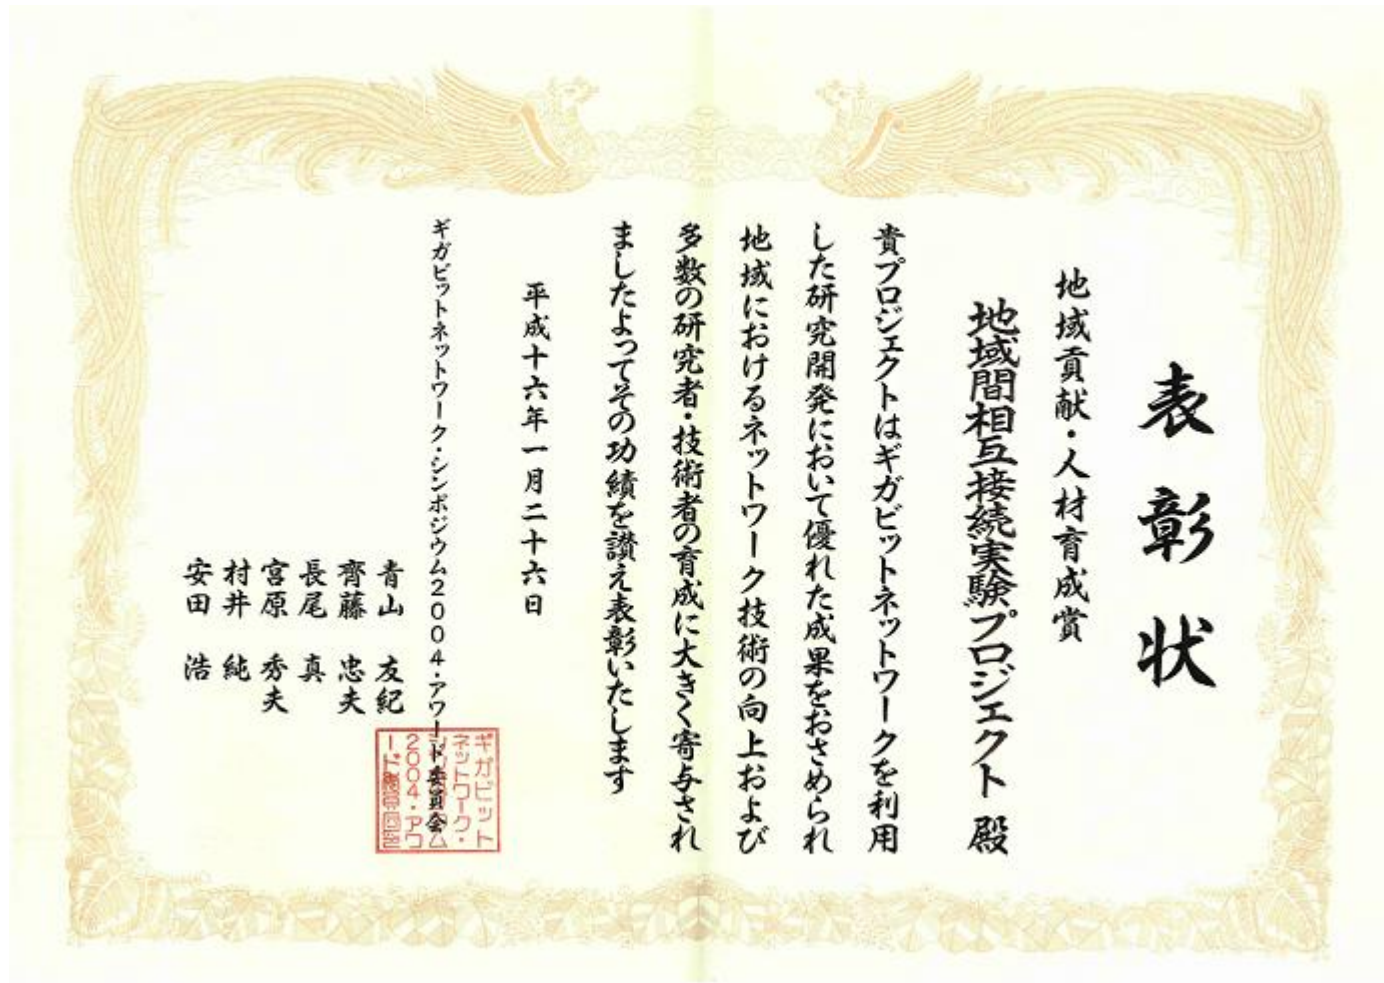 表彰状
地域貢献・人材育成賞
地域間相互接続実験プロジェクト 殿
貴プロジェクトはギガビットネットワークを利用
した研究開発において優れた成果をおさめられ
地域におけるネットワーク技術の向上および
多数の研究者・技術者の育成に大きく寄与され
ましたよってその功績を讃え表彰いたします
平成十六年一月二十六日
ギガビットネットワーク・シンポジウム2004・アワード委員会
青山 友紀
齊藤 忠夫
長尾 真
宮原 秀夫
村井 純
安田 浩
ギガビット
ネットワーク・
シンポジウム
2004・アワ
ード委員会印